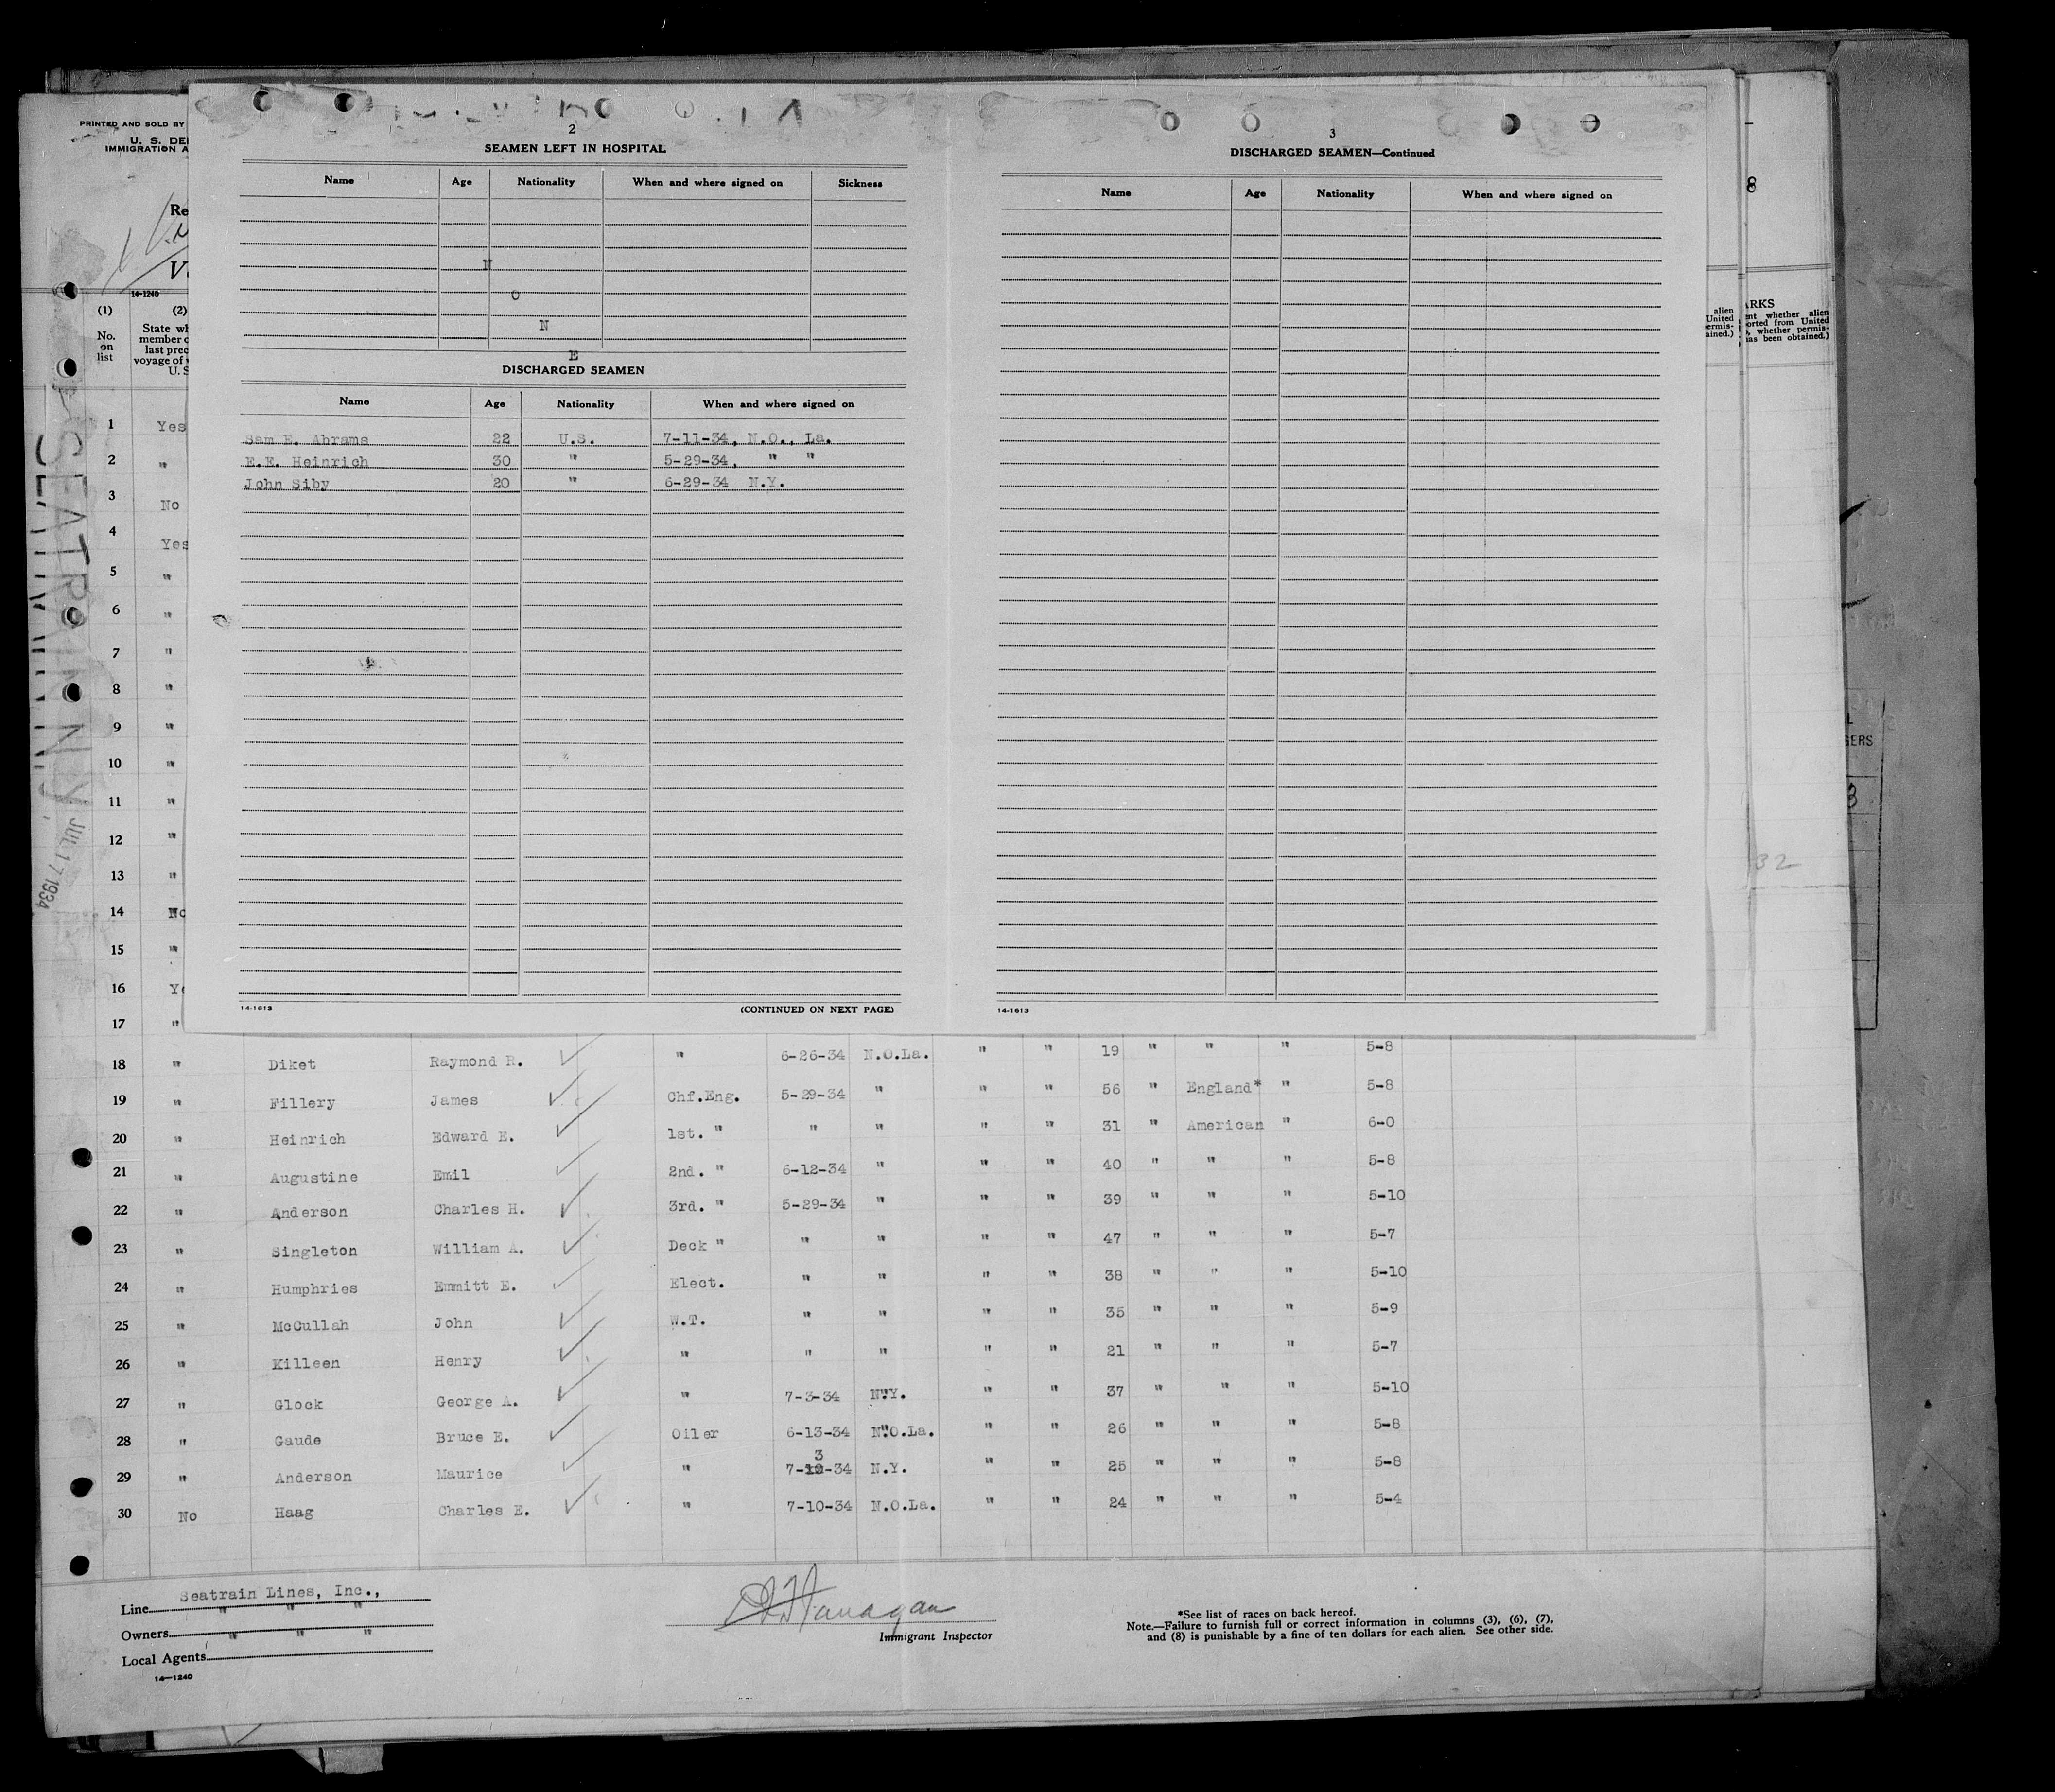 PRINTED AND SOLD BY
U. S. DE
IMMIGRATION A
Re
14-1240
(1) (2)
No. on list
State wh
member o
last prec
voyage of
U. S
2
SEAMEN LEFT IN HOSPITAL
Name Age Nationality When and where signed on Sickness
N
O
N
E
DISCHARGED SEAMEN
Name Age Nationality When and where signed on
Sam E. Abrams 22 U.S. 7-11-34, N.O., La.
E.E. Heinrich 30 " 5-29-34, " "
John Siby 20 " 6-29-34 N.Y.
14-1613 (CONTINUED ON NEXT PAGE)
3
DISCHARGED SEAMEN—Continued
Name Age Nationality When and where signed on
14-1613
8
alien
United
ermis-
ained.)
ARKS
ent whether alien
orted from United
, whether permis-
has been obtained.)
GERS
3
32
SEATRAIN N.Y.
JUL 17 1934
1 Yes
2 "
3 No
4 Yes
5 "
6 "
7 "
8 "
9 "
10 "
11 "
12 "
13 "
14 No
15 "
16 Ye
17 "
18 " Diket Raymond R. " 6-26-34 N.O.La. " " 19 " " " 5-8
19 " Fillery James Chf.Eng. 5-29-34 " " " 56 " England* " 5-8
20 " Heinrich Edward E. 1st. " " " " " 31 " American " 6-0
21 " Augustine Emil 2nd. " 6-12-34 " " " 40 " " " 5-8
22 " Anderson Charles H. 3rd. " 5-29-34 " " " 39 " " " 5-10
23 " Singleton William A. Deck " " " " " 47 " " " 5-7
24 " Humphries Emmitt E. Elect. " " " " 38 " " " 5-10
25 " McCullah John W.T. " " " " 35 " " " 5-9
26 " Killeen Henry " " " " " 21 " " " 5-7
27 " Glock George A. " 7-3-34 N.Y. " " 37 " " " 5-10
28 " Gaude Bruce E. Oiler 6-13-34 N.O.La. " " 26 " " " 5-8
29 " Anderson Maurice " 7-3-34 N.Y. " " 25 " " " 5-8
30 No Haag Charles E. " 7-10-34 N.O.La. " " 24 " " " 5-4
Line Seatrain Lines, Inc.,
Owners " " "
Local Agents " " "
14-1240
Flanagan
Immigrant Inspector
*See list of races on back hereof.
Note.—Failure to furnish full or correct information in columns (3), (6), (7),
and (8) is punishable by a fine of ten dollars for each alien. See other side.